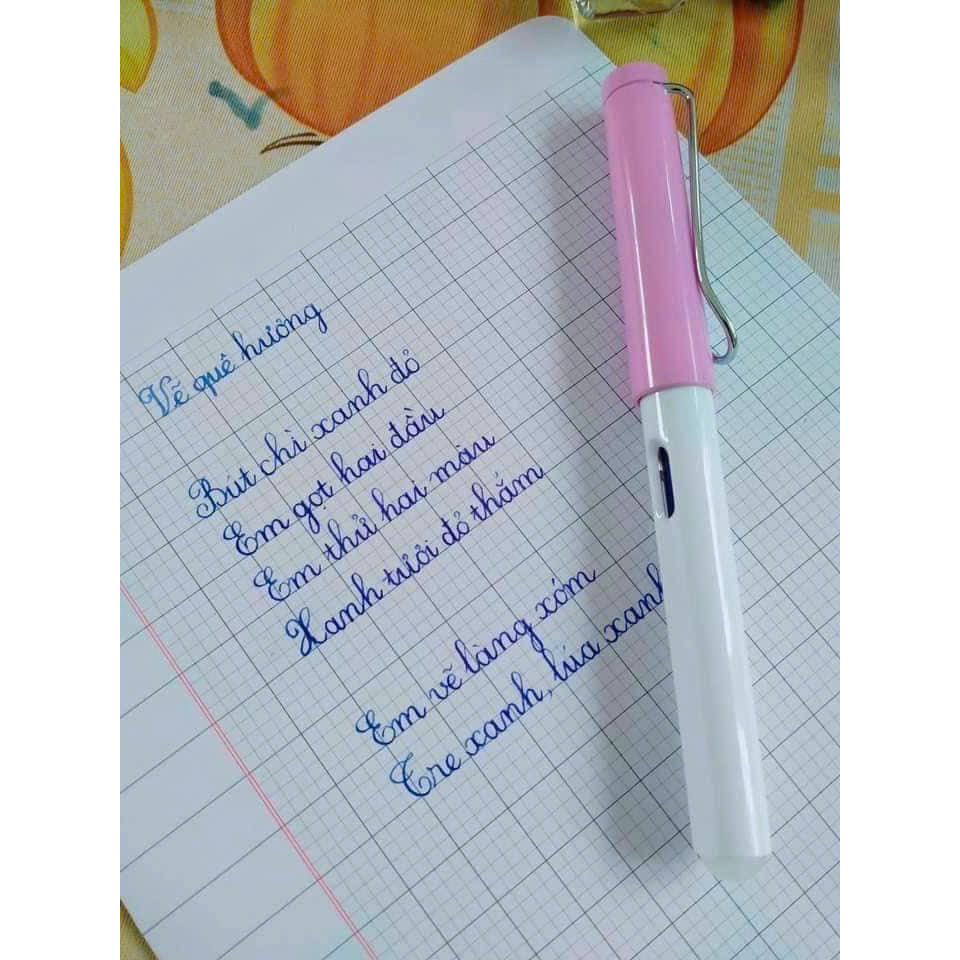 Vẽ quê hương
Bút chì xanh đỏ
Em gọt hai đầu
Em thử hai màu
Xanh tươi đỏ thắm
Em vẽ làng xóm
Tre xanh, lúa xanh